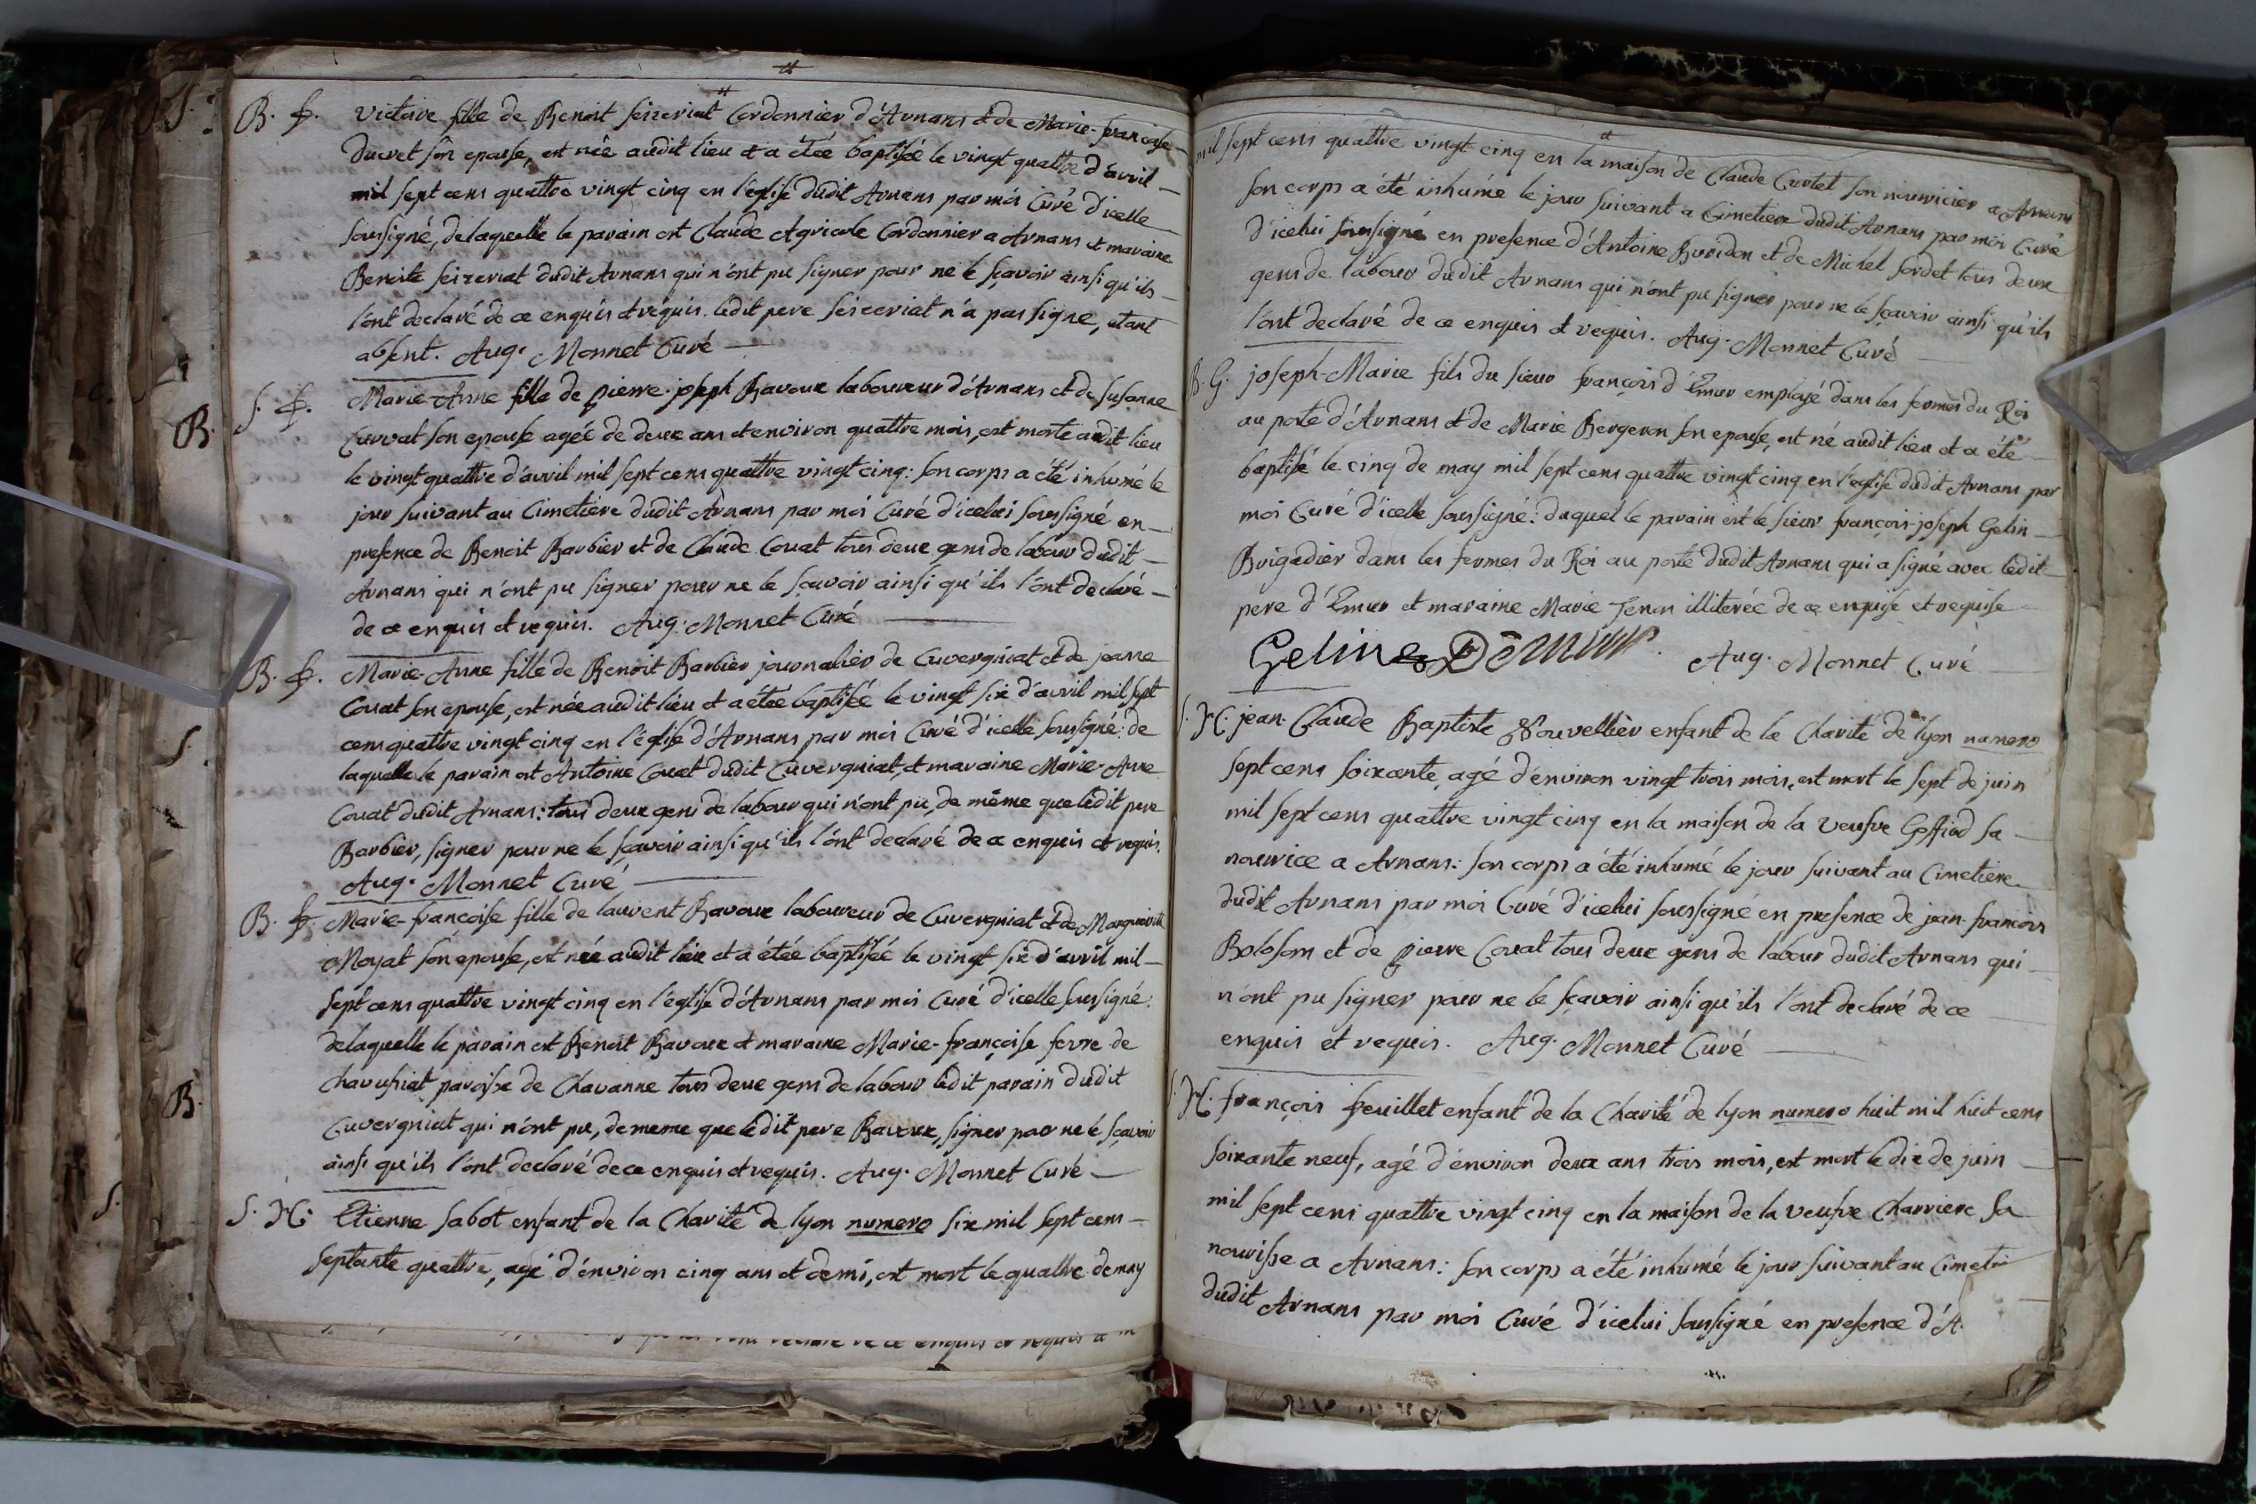 B. f. Victoire fille de Benoit seizeriat Cordonnier d'Arnans et de Marie-francoise
Ducret son epouse, est née audit lieu et a étée baptisée le vingt quattre d'avril
mil sept cens quattre vingt cinq en l'église dudit Arnans par moi Curé d'icelle
soussigné, de laquelle le parain est Claude Agricole Cordonnier a Arnans et maraine
Benoite seizeriat dudit Arnans qui n'ont pu signer pour ne le sçavoir ainsi qu'ils
l'ont declaré de ce enquis et requis. ledit pere seizeriat n'a pas signé, etant
absent. Aug. Monnet Curé
S. f. Marie-Anne fille de pierre-joseph Ravoux laboureur d'Arnans et de susanne
Curvat son epouse agée de deux ans et environ quattre mois, est morte audit lieu
le vingt quattre d'avril mil sept cens quattre vingt cinq: son corps a été inhumé le
jour suivant au Cimetière dudit Arnans par moi Curé d'icelui soussigné en
presence de Benoit Barbier et de Claude Couat tous deux gens de labour dudit
Arnans qui n'ont pu signer pour ne le sçavoir ainsi qu'ils l'ont declaré
de ce enquis et requis. Aug. Monnet Curé
B. f. Marie-Anne fille de Benoit Barbier journalier de Cuvergniat et de jeanne
Couat son epouse, est née audit lieu et a étée baptisée le vingt six d'avril mil sept
cens quattre vingt cinq en l'église d'Arnans par moi Curé d'icelle soussigné: de
laquelle le parain est Antoine Couat dudit Cuvergniat, et maraine Marie-Anne
Couat dudit Arnans: tous deux gens de labour qui n'ont pu, de même que ledit pere
Barbier, signer pour ne le sçavoir ainsi qu'ils l'ont declaré de ce enquis et requis.
Aug. Monnet Curé
B. f. Marie-françoise fille de laurent Ravoux laboureur de Cuvergniat et de Marguerite
Moyat son epouse, est née audit lieu et a étée baptisée le vingt six d'avril mil
sept cens quattre vingt cinq en l'église d'Arnans par moi Curé d'icelle soussigné:
delaquelle le parain est Benoit Ravoux et maraine Marie-françoise fevre de
Chavusiat paroisse de Chavanne tous deux gens de labour ledit parain dudit
Cuvergniat qui n'ont pu, de meme que ledit pere Ravoux, signer pour ne le sçavoir
ainsi qu'ils l'ont declaré de ce enquis et requis. Aug. Monnet Curé
S. H. Etienne sabot enfant de la Charité de lyon numero six mil sept cens
septante quattre, agé d'environ cinq ans et demi, est mort le quattre de may
mil sept cens quattre vingt cinq en la maison de Claude Curtet son nouricier a Arnans
son corps a été inhumé le jour suivant a Cimetiere dudit Arnans par moi Curé
d'icelui soussigné en presence d'Antoine Buridon et de Michel sordet tous deux
gens de labour dudit Arnans qui n'ont pu signer pour ne le sçavoir ainsi qu'ils
l'ont declaré de ce enquis et requis. Aug. Monnet Curé
B. G. joseph-Marie fils du sieur françois d'Emur employé dans les fermes du Roi
au poste d'Arnans et de Marie Bergeron son epouse, est né audit lieu et a été
baptisé le cinq de may mil sept cens quattre vingt cinq en l'eglise dudit Arnans par
moi Curé d'icelle soussigné: duquel le parain est le sieur françois-joseph Gelin
Brigadier dans les fermes du Roi au poste dudit Arnans qui a signé avec ledit
pere d'Emur et maraine Marie Jenin illiterée de ce enquise et requise
Geline Démur Aug. Monnet Curé
S. H. jean-Claude Baptiste Nouvellier enfant de la Charité de lyon numero
sept cens soixante, agé d'environ vingt trois mois, est mort le sept de juin
mil sept cens quattre vingt cinq en la maison de la veufve Goffiod sa
nourice a Arnans: son corps a été inhumé le jour suivant au Cimetiere
dudit Arnans par moi Curé d'icelui soussigné en presence de jean-francois
Bolosom et de pierre Couat tous deux gens de labour dudit Arnans qui
n'ont pu signer pour ne le sçavoir ainsi qu'ils l'ont declaré de ce
enquis et requis. Aug. Monnet Curé
S. H. françois feuillet enfant de la Charité de lyon numero huit mil huit cens
soixante neuf, agé d'environ deux ans trois mois, est mort le dix de juin
mil sept cens quattre vingt cinq en la maison de la veufve Charriere sa
nourisse a Arnans: son corps a été inhumé le jour suivant au Cimeti
dudit Arnans par moi Curé d'icelui soussigné en presence d'A.